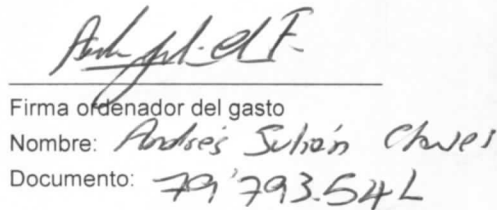 Firma ordenador del gasto
Nombre: Andrés Julián Chaves
Documento: 79'793.542